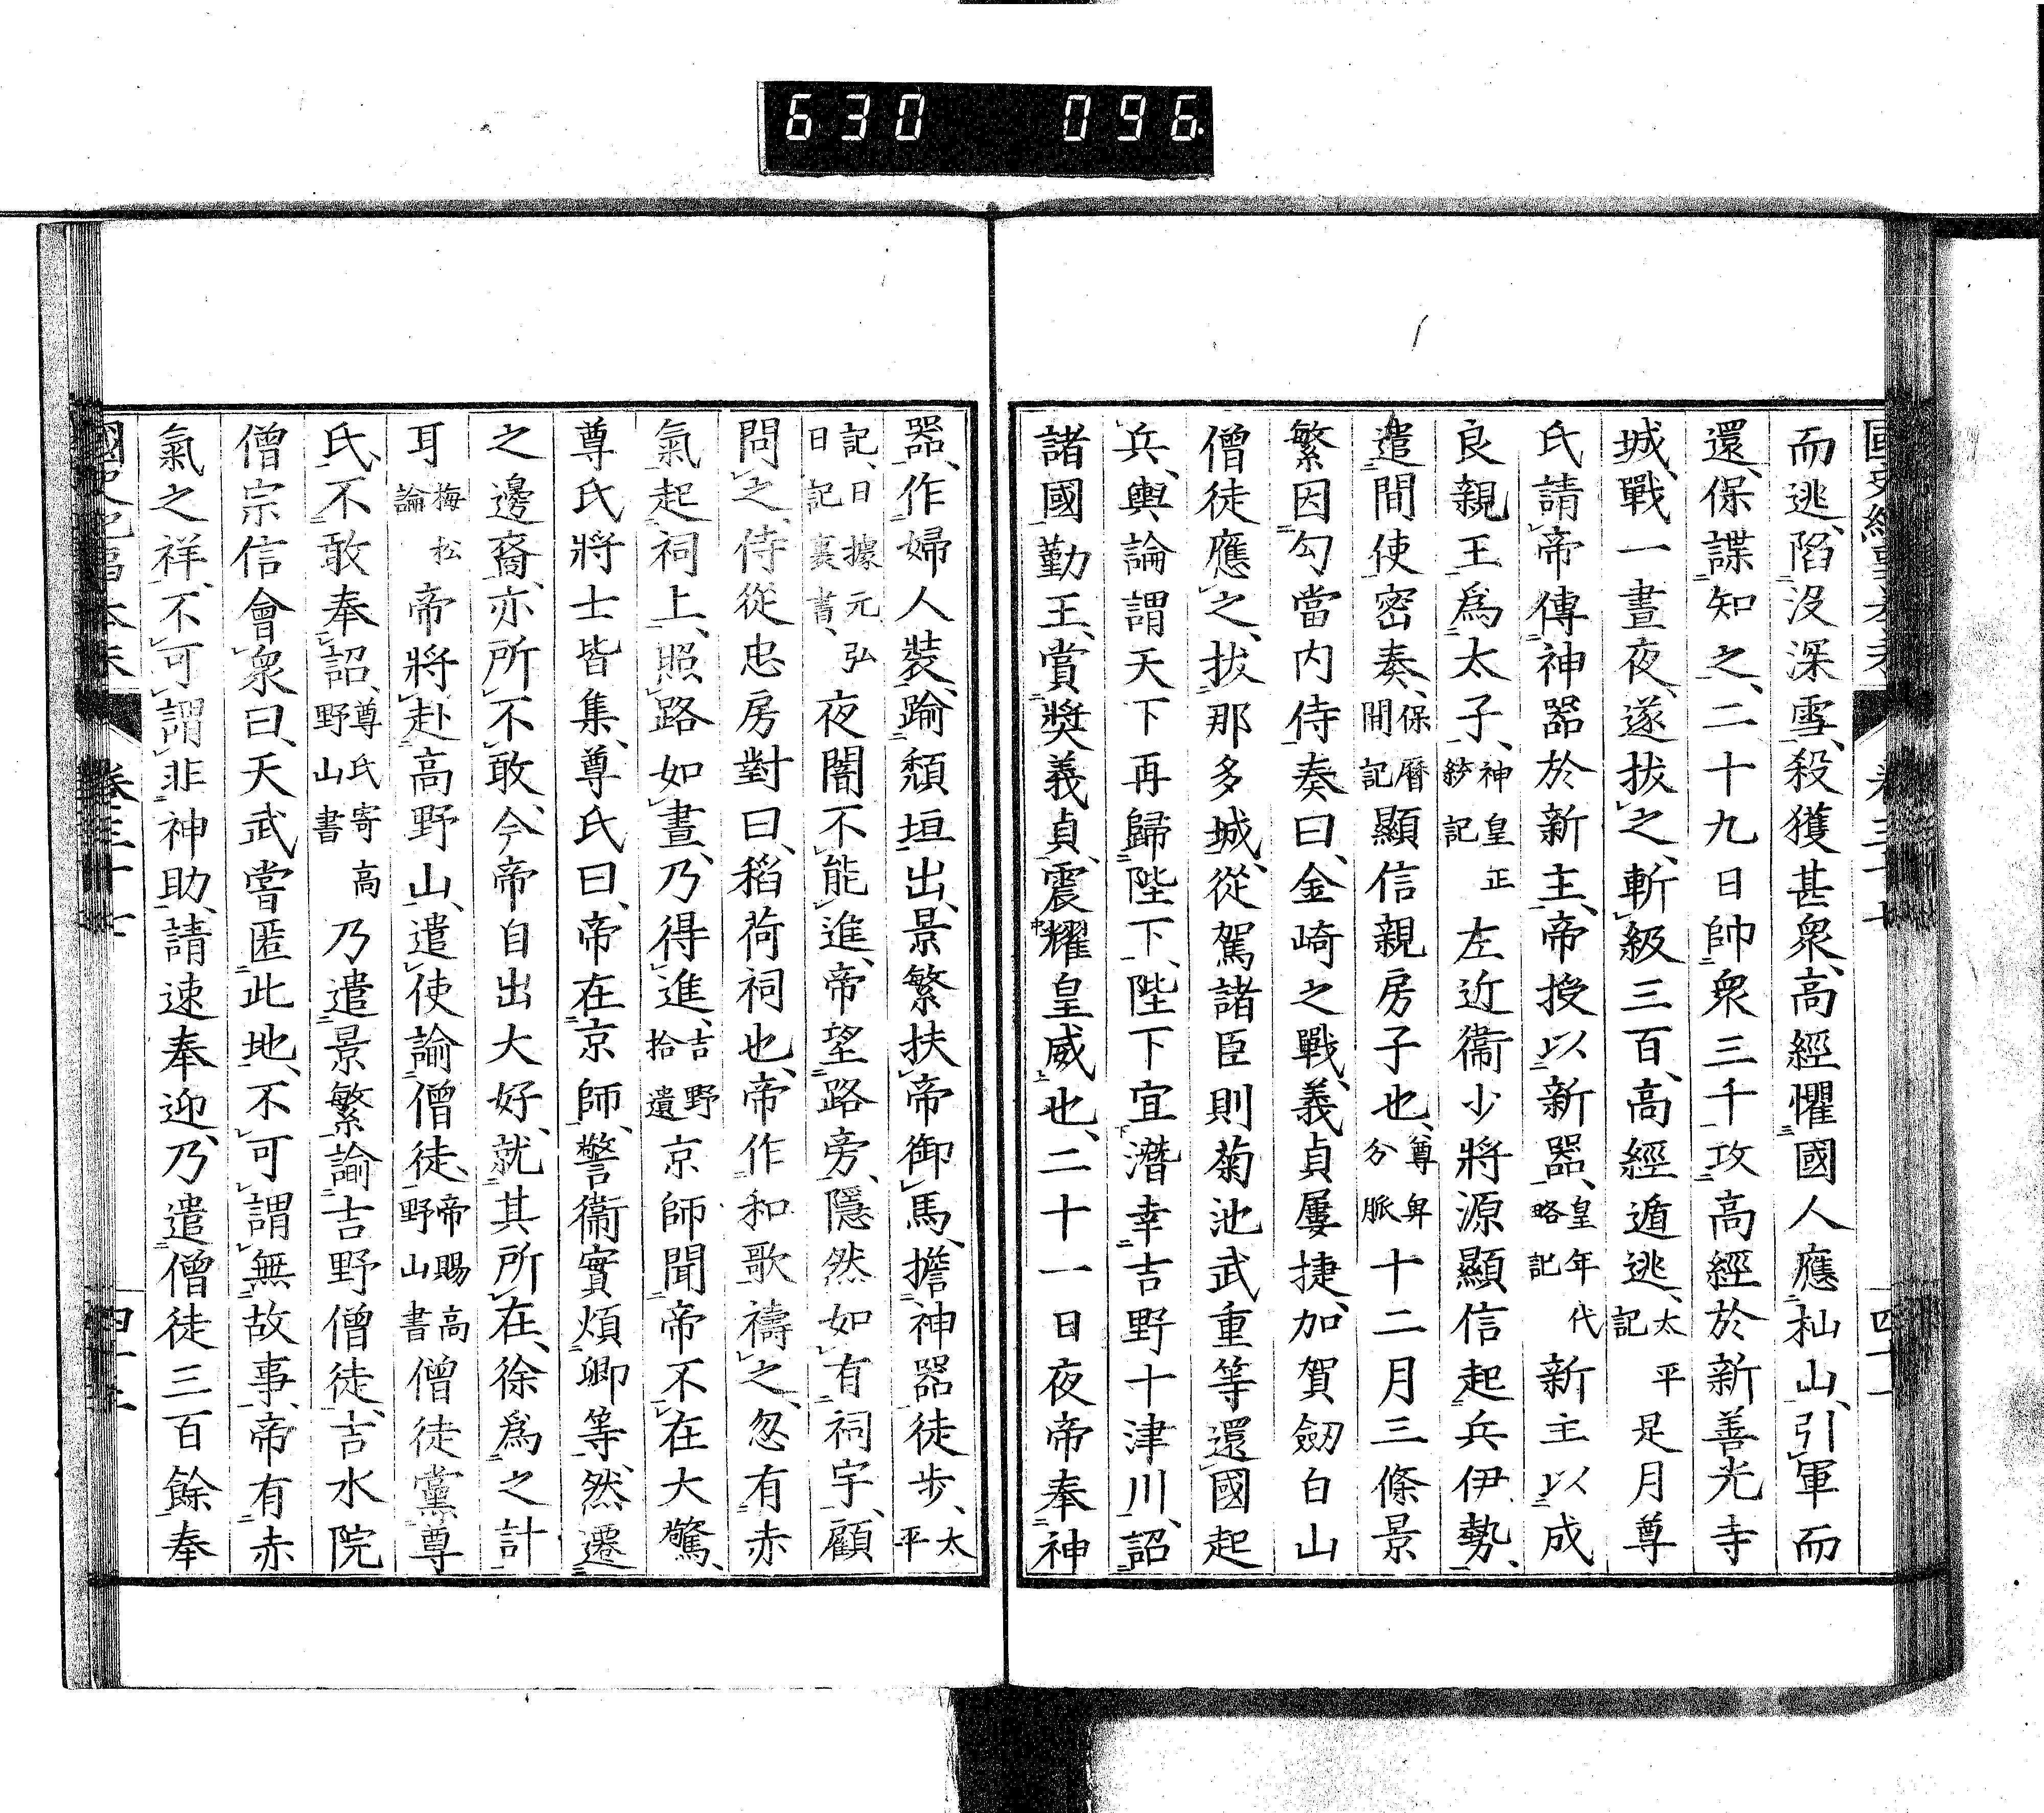 630 096
而逃、陷沒深雪、殺獲甚衆、高經懼國人應杣山、引軍而
還、保諜知之、二十九日帥衆三千攻高經於新善光寺
城、戰一晝夜、遂拔之、斬級三百、高經遁逃、太平記是月尊
氏請帝傳神器於新主、帝授以新器、皇年代略記新主以成
良親王爲太子、神皇正統記左近衞少將源顯信起兵伊勢、
遣間使密奏、保曆間記顯信親房子也、尊卑分脈十二月三條景
繁因勾當内侍奏曰、金崎之戰、義貞屢捷、加賀劒白山
僧徒應之、拔那多城、從駕諸臣則菊池武重等還國起
兵、輿論謂天下再歸陛下、陛下宜潛幸吉野十津川、詔
諸國勤王、賞奬義貞、震耀皇威也、二十一日夜帝奉神
器、作婦人裝、踰頽垣出、景繁扶帝御馬、擔神器徒歩、太平
記、日據元弘日記裏書、夜闇不能進、帝望路旁、隱然如有祠宇、顧
問之、侍從忠房對曰、稻荷祠也、帝作和歌禱之、忽有赤
氣起祠上、照路如晝、乃得進、吉野拾遺京師聞帝不在大驚、
尊氏將士皆集、尊氏曰、帝在京師、警衞實煩卿等、然遷
之邊裔、亦所不敢、今帝自出大好、就其所在、徐爲之計
耳梅松論帝將赴高野山、遣使諭僧徒、帝賜高野山書僧徒黨尊
氏、不敢奉詔、尊氏寄高野山書乃遣景繁諭吉野僧徒、吉水院
僧宗信會衆曰、天武嘗匿此地、不可謂無故事、帝有赤
氣之祥、不可謂非神助、請速奉迎、乃遣僧徒三百餘奉